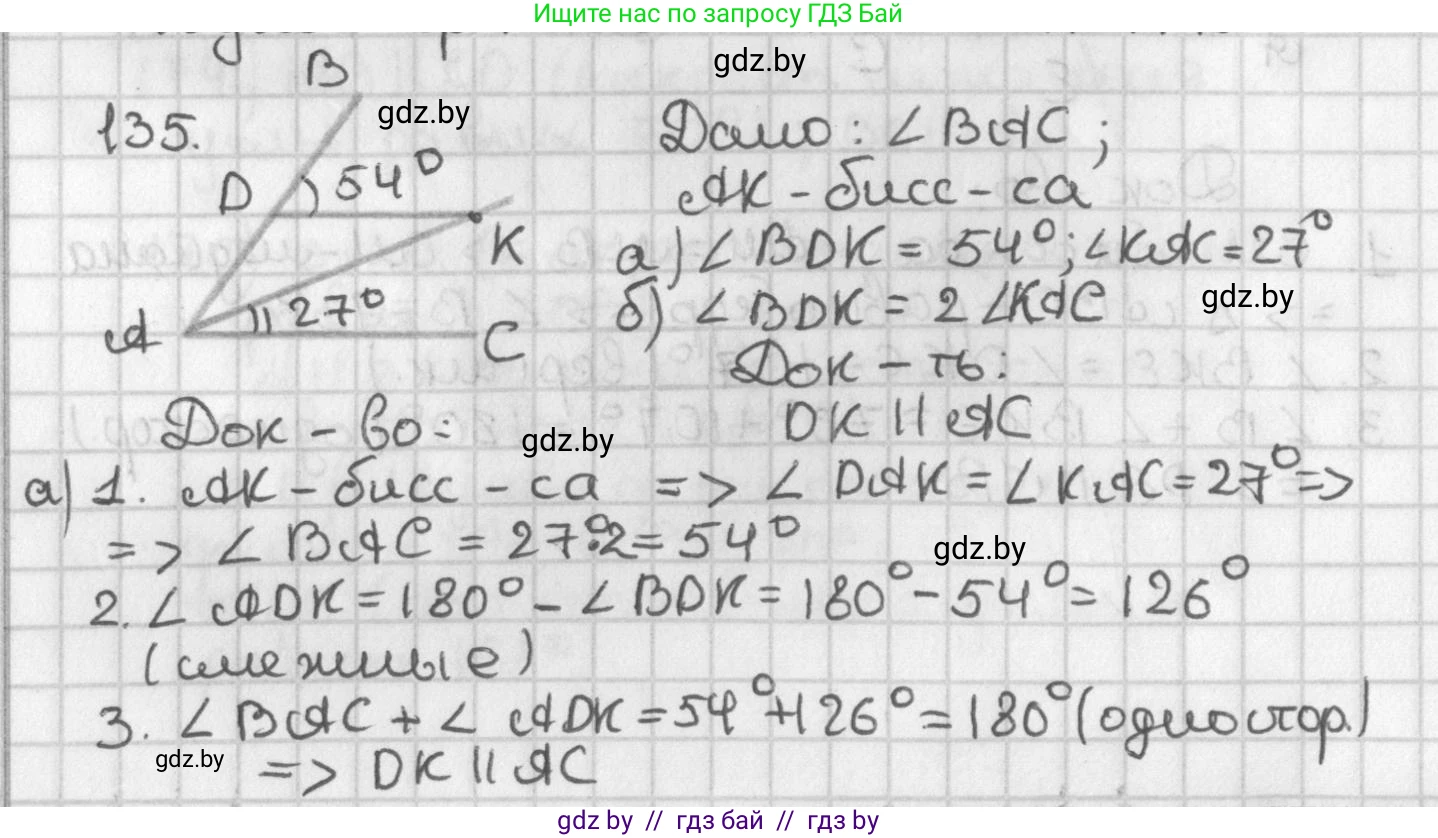 Ищите нас по запросу ГДЗ Бай
gdz.by
B
135.
gdz.by
Дано: ∠BAC;
D
54°
AK - бисс-са
K
а) ∠BDK = 54°; ∠KAC = 27°
gdz.by
A
27°
C
б) ∠BDK = 2∠KAC
Док-ть:
DK || AC
Док-во:
gdz.by
а) 1. AK - бисс-са => ∠DAK = ∠KAC = 27° =>
=> ∠BAC = 27°·2 = 54°
gdz.by
2. ∠ADK = 180° - ∠BDK = 180° - 54° = 126°
(смежные)
3. ∠BAC + ∠ADK = 54° + 126° = 180° (одностор.)
gdz.by
=> DK || AC
gdz by // гдз бай // гдз by